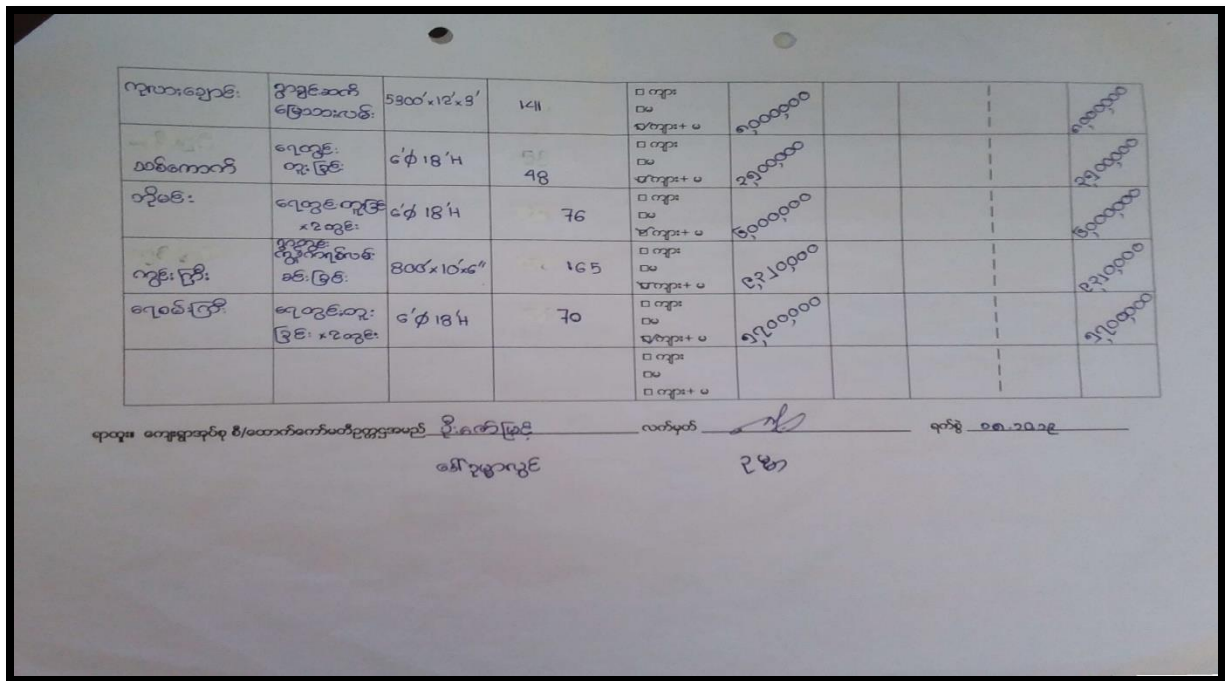 ကုလားချောင်း
ရွာချင်းဆက်
မြေသားလမ်း
5300'×12'×3'
141
□ ကျား
□ မ
ကျား + မ
၅,၀၀၀,၀၀၀
၅,၀၀၀,၀၀၀
သစ်ကောက်
ရေတွင်း
တူးခြင်း
6'φ 18'H
48
□ ကျား
□ မ
ကျား + မ
၂၅၀၀,၀၀၀
၂၅၀၀,၀၀၀
ဘိုမင်း
ရေတွင်းတူးခြင်း
×၂တွင်း
6'φ 18'H
76
□ ကျား
□ မ
ကျား + မ
၆,၀၀၀,၀၀၀
၆,၀၀၀,၀၀၀
ကျွဲကြီး
ရွာတွင်း
ကွန်ကရစ်လမ်း
ခင်းခြင်း
800'×10'×6"
165
□ ကျား
□ မ
ကျား + မ
၉,၃၂၀,၀၀၀
၉,၃၂၀,၀၀၀
ရေစမ်းကြီး
ရေတွင်းတူး
ခြင်း ×၂တွင်း
6'φ 18'H
70
□ ကျား
□ မ
ကျား + မ
၅,၇၀၀,၀၀၀
၅,၇၀၀,၀၀၀
□ ကျား
□ မ
□ ကျား + မ
ရာထူး။ ကျေးရွာအုပ်စု စီ/ထောက်ကော်မတီဥက္ကဋ္ဌအမည် ဦးဇော်မြင့် လက်မှတ် ရက်စွဲ
ဒေါ်ဥမ္မာလွင် ဥမ္မာ